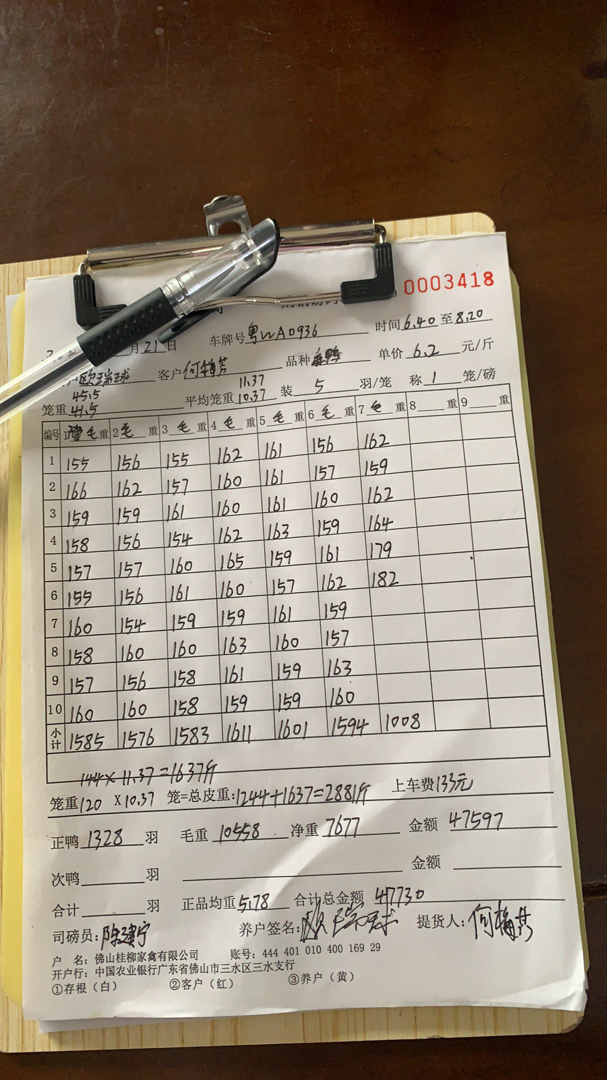 0003418
月21日 车牌号 粤WA0936 时间 6.40 至 8.20
欧瑞球 客户 何梅芳 品种 单价 6.2 元/斤
45.5 11.37
笼重 41.5 平均笼重 10.37 装 5 羽/笼 称 1 笼/磅
编号 1 毛 重 2 毛 重 3 毛 重 4 毛 重 5 毛 重 6 毛 重 7 毛 重 8 重 9 重
1 155 156 155 162 161 156 162
2 166 162 157 160 161 157 159
3 159 159 161 160 161 160 162
4 158 156 154 162 163 159 164
5 157 157 160 165 159 161 179
6 155 156 161 160 157 162 182
7 160 154 159 159 161 159
8 158 160 160 163 160 157
9 157 156 158 161 159 163
10 160 160 158 159 159 160
小计 1585 1576 1583 1611 1601 1594 1008
144 × 11.37 = 1637斤
笼重 120 X 10.37 笼=总皮重: 1244+1637=2881斤 上车费 133元
正鸭 1328 羽 毛重 10558 净重 7677 金额 47597
次鸭 羽 金额
合计 羽 正品均重 5.78 合计总金额 47730
司磅员: 陈建宁 养户签名: 欧瑞球 提货人: 何梅芳
户 名: 佛山桂柳家禽有限公司 账号: 444 401 010 400 169 29
开户行: 中国农业银行广东省佛山市三水区三水支行
①存根（白） ②客户（红） ③养户（黄）